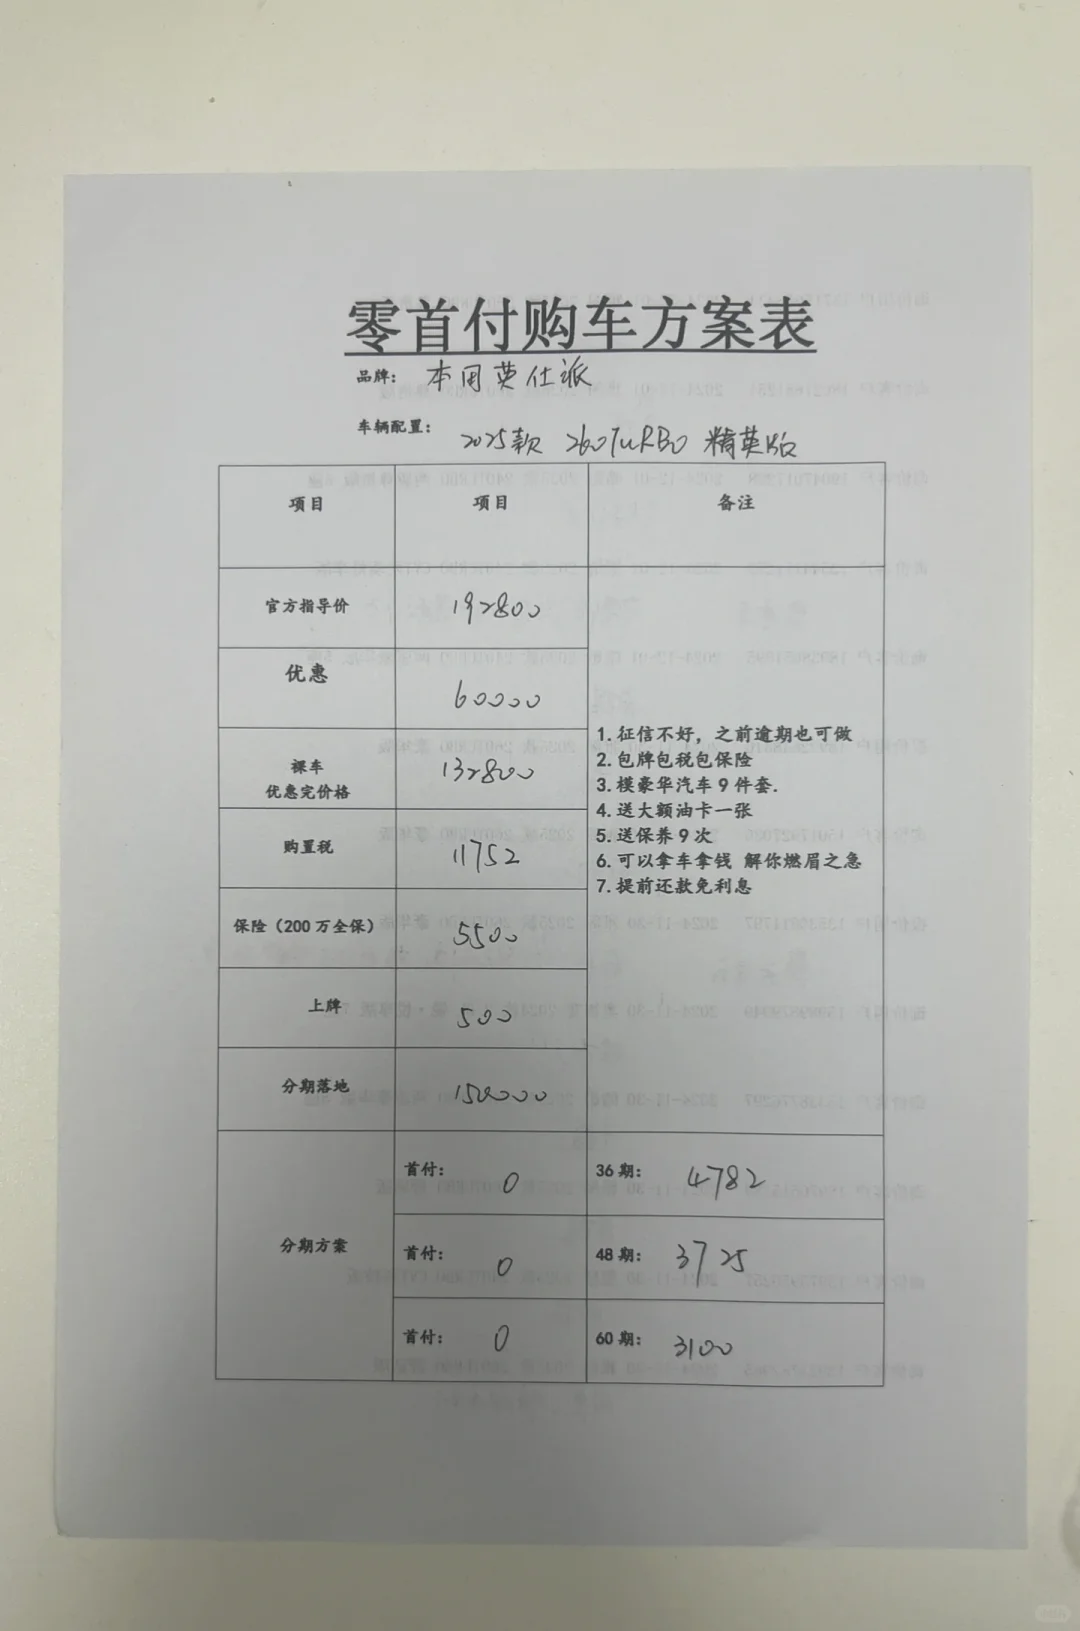 零首付购车方案表
品牌： 本田英仕派
车辆配置： 2025款 260TURBO 精英版
项目 项目 备注
官方指导价 192800
优惠 60000
裸车 132800
优惠完价格
购置税 11752
保险（200万全保） 5500
上牌 500
分期落地 150000
1. 征信不好，之前逾期也可做
2. 包牌包税包保险
3. 模豪华汽车 9 件套.
4. 送大额油卡一张
5. 送保养 9 次
6. 可以拿车拿钱 解你燃眉之急
7. 提前还款免利息
分期方案
首付： 0 36 期： 4782
首付： 0 48 期： 3725
首付： 0 60 期： 3100